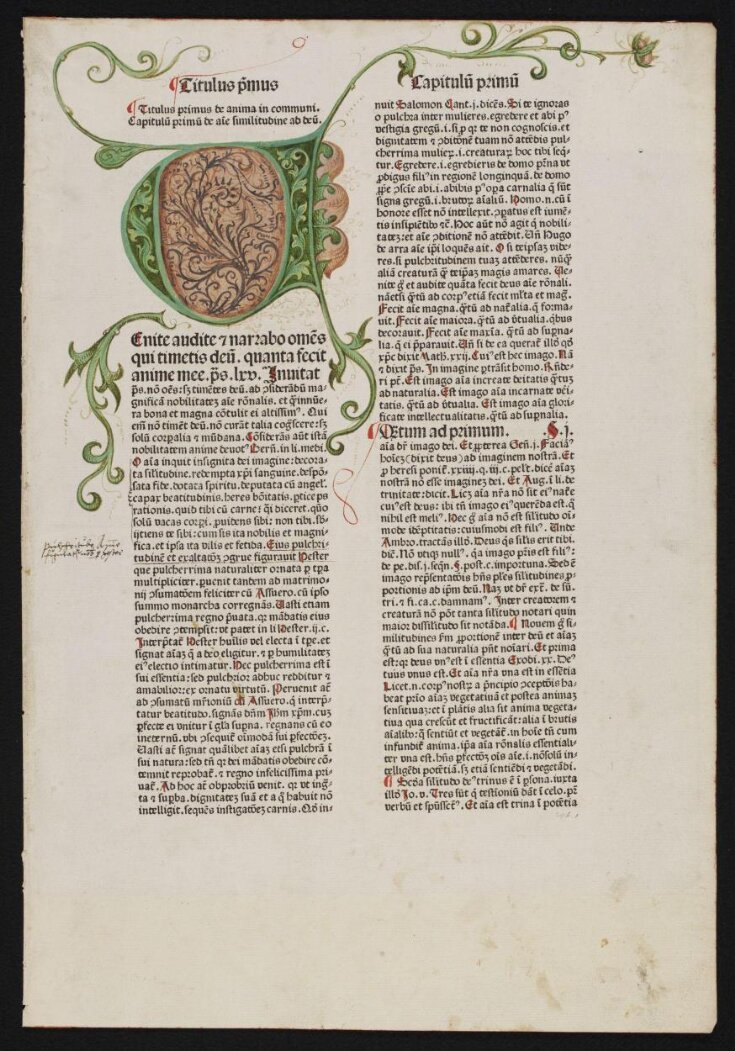 Titulus p̄mus
¶ Titulus primus de anima in communi.
Capitulū primū de aīe similitudine ad deū.
Enite audite ⁊ narrabo om̄es
qui timetis deū. quanta fecit
anime mee. p̄s. lxv. Inuitat
p̄s. nō oēs: sꝫ timētes deū. ad ↄsiderādū ma-
gnificā nobilitatez aīe rōnalis. et q̄ innūe-
ra bona et magna cōtulit ei altissimꝰ. Qui
em̄ nō timēt deū. nō curāt talia cogscere: sꝫ
solū corpalia ⁊ mūdana. Cōsiderās aūt istā
nobilitatem anime deuotꝰ Bern̄. in li. medi.
O aīa inquit insignita dei imagine: decora-
ta silitudine. redempta xp̄i sanguine. despō-
sata fide. dotata spiritu. deputata cū angel.
capax beatitudinis. heres bōitatis. ꝑticeps
rationis. quid tibi cū carne: q̄i diceret. quo
solū vacas corpi. ꝓuidens sibi: non tibi. sb̄-
ijciens te sibi: cum sis ita nobilis et magni-
fica. et ipsa ita vilis et fetida. Eius pulchri-
tudinē et exaltatōꝫ ↄgrue figurauit Hester
que pulcherrima naturaliter ornata ꝑ tꝑa
multipliciter. ꝑuenit tandem ad matrimo-
nij ↄsumatōem feliciter cū Assuero. cū ipso
summo monarcha corregnās. Uasti etiam
pulcherrima regno p̄uata. qꝛ mādatis eius
obedire ↄtempsit: vt patet in li Hester. ij. c.
Interp̄tat̄ Hester hūilis vel electa ī tꝑe. et
signat aīaꝫ q̄ a deo eligitur. ⁊ ꝑ humilitatē
eiꝰ electio intimatur. Hec pulcherrima est ī
sui essentia: sed pulchrior adhuc redditur ⁊
amabilior: ex ornatu virtutū. Peruenit āt
ad ↄsumatū mr̄ioniū cū Assuero. q̄ interp̄-
tatur beatitudo. signās dn̄m Ih̄m xp̄m. cuꝫ
ꝑfecte ei vnitur ī gl̄a supna. regnans cū eo
ineternū. vbi ↄsequit̄ oīmodā sui ꝑfectōeꝫ.
Uasti āt signat quālibet aīaꝫ etsi pulchrā ī
sui natura: sed tn̄ qꝛ dei mādatis obedire cō-
temnit reprobat̄. ⁊ regno infelicissima pri-
uat̄. Ad hoc āt obprobriū venit. qꝛ vt inḡ-
ta ⁊ supba. dignitateꝫ suā et a q̄ habuit nō
intelligit. sequēs instigatōeꝫ carnis. Qd̄ in-
Capitulū primū
nuit Salomon Cant. j. dicēs. Si te ignoras
o pulchra inter mulieres. egredere et abi pꝰ
vestigia gregū. i. si ꝑ qꝛ te non cognoscis. et
dignitatem ⁊ ↄditōnē tuam nō attēdis pul-
cherrima mulieꝝ. i. creaturaꝝ hoc tibi seq̄-
tur. Egredere. i. egredieris de domo p̄ma vt
ꝓdigus filiꝰ in regionē longinquā. de domo
ꝓprie ↄscīe abi. i. abibis pꝰ oꝑa carnalia q̄ sūt
signa gregū. i. brutoꝝ aīaliū. Homo. n. cū ī
honore esset nō intellexit. ↄparatus est iumē-
tis insipiētibꝰ ⁊c̄. Hoc aūt nō agit q̄ nobili-
tateꝫ: et aīe ↄditionē nō attēdit. Un̄ Hugo
de arra aīe ip̄i loquēs ait. O si teipsaꝫ vide-
res. si pulchritudinem tuaꝫ attēderes. nūq̄
aliā creaturā q̄ teip̄aꝫ magis amares. Ue-
nite g̊ et audite quāta fecit deus aīe rōnali.
nā etsi q̄tū ad corpꝰ etiā fecit ml̄ta et maḡ.
Fecit aīe magna. q̄tū ad nat̄alia. q̄ forma-
uit. Fecit aīe maiora. q̄tū ad v̄tualia. q̄bus
decorauit. Fecit aīe maxīa. q̄tū ad supna-
lia. q̄ ei p̄parauit. Un̄ si de ea querat̄ illō qd̄
xp̄c dixit Math. xxij. Cuiꝰ est hec imago. Nā
⁊ dixit p̄s. In imagine ꝑtrāsit homo. R̄nde-
ri pōt. Est imago aīa increate deitatis q̄tuꝫ
ad naturalia. Est imago aīa incarnate vēi-
tatis. q̄tū ad v̄tualia. Est imago aīa glori-
ficate intellectualitatis. q̄tū ad supnalia.
¶ Q̄tum ad primum. S. j.
aīa dr̄ imago dei. Et ꝓpterea Gen̄. j. Faciāꝰ
hoīeꝫ (dixit deus) ad imaginem nostrā. Et
trinitate: dicit. Licꝫ aīa nr̄a nō sit eiꝰ nat̄e
nihil est meliꝰ. Hec g̊ aīa est silitudo oī-
mode idēptitatis: cuiusmodi est filiꝰ. Unde
Ambro. tractās illō. Deus q̄s silis erit tibi.
dic̄. Nō vtiqꝫ nullꝰ. q̄a imago pr̄is est filiꝰ:
de pe. dis. j. seqn̄. §. post. c. importuna. Sed ē
portionis ad ip̄m deū. Naꝫ vt dr̄ ext̄. de sū.
tri. ⁊ fi. ca. c. damnamꝰ. Inter creatorem ⁊
creaturā nō pōt tanta silitudo notari quin
maior dissilitudo sit notāda. ¶ Nouem g̊ si-
militudines fm̄ ꝓportionē inter deū et aīaꝫ
q̄tū ad sua naturalia pn̄t noīari. Et prima
est: qꝛ deus vnꝰ est ī essentia Exodi. xx. Deꝰ
tuus vnus est. Et aīa nr̄a vna est in essētia
Licet. n. corpꝰ nostꝝ a p̄ncipio ↄceptōis ha-
beat prio aīaꝫ vegetatiuā et postea animaꝫ
sensitiuaꝫ: et ī plātis alia sit anima vegeta-
tiua qua crescūt et fructificāt: alia ī brutis
aīalibꝰ: q̄ sentiūt et vegetāt̄. in hoīe tn̄ cum
infundit̄ anima. ip̄a aīa rōnalis essentiali-
ter vna est. hn̄s ꝑfectōꝫ oīs aīe. i. nōsolū in-
telligēdi potētiā. sꝫ etiā sentiēdi ⁊ vegetādi.
¶ Scd̄a silitudo deꝰ trinus ē ī ꝑsona. iuxta
illō Jo. v. Tres sūt q̄ testioniū dāt ī celo. pr̄
verbū et spūssctꝰ. Et aīa est trina ī potētia